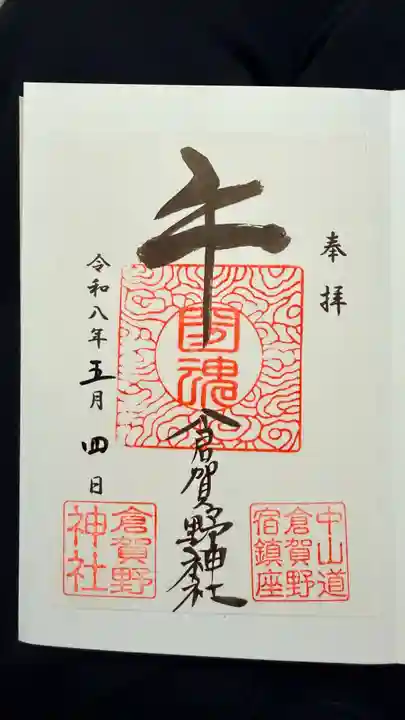 奉拝
午
国魂
倉賀野神社
中山道
倉賀野
宿鎮座
令和八年五月四日
倉賀野
神社